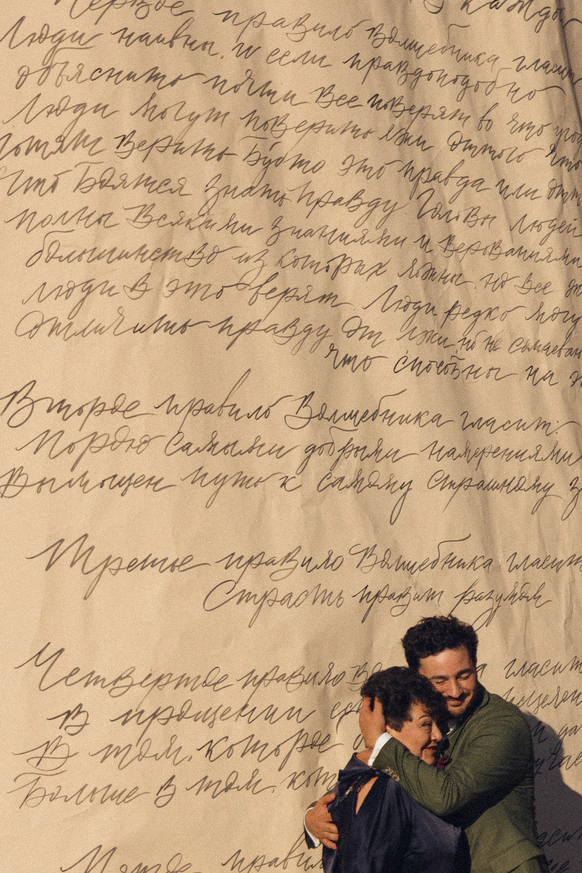 Первое правило Волшебника
Люди наивны. и если правдоподобно
объяснить почти все поверят во что
Люди могут поверить лжи оттого что
хотят верить будто это правда или
что боятся знать правду Головы людей
полны всякими знаниями и верованиями
большинство из которых ложны но все
люди в это верят Люди редко могут
отличить правду от лжи но не
что способны на
Второе правило Волшебника гласит:
Порою самыми добрыми намерениями
вымощен путь к самому страшному
Третье правило Волшебника гласит
Страсть правит разумом
Четвертое правило гласит
в прощении
в том, которое
больше в том, кот
правил